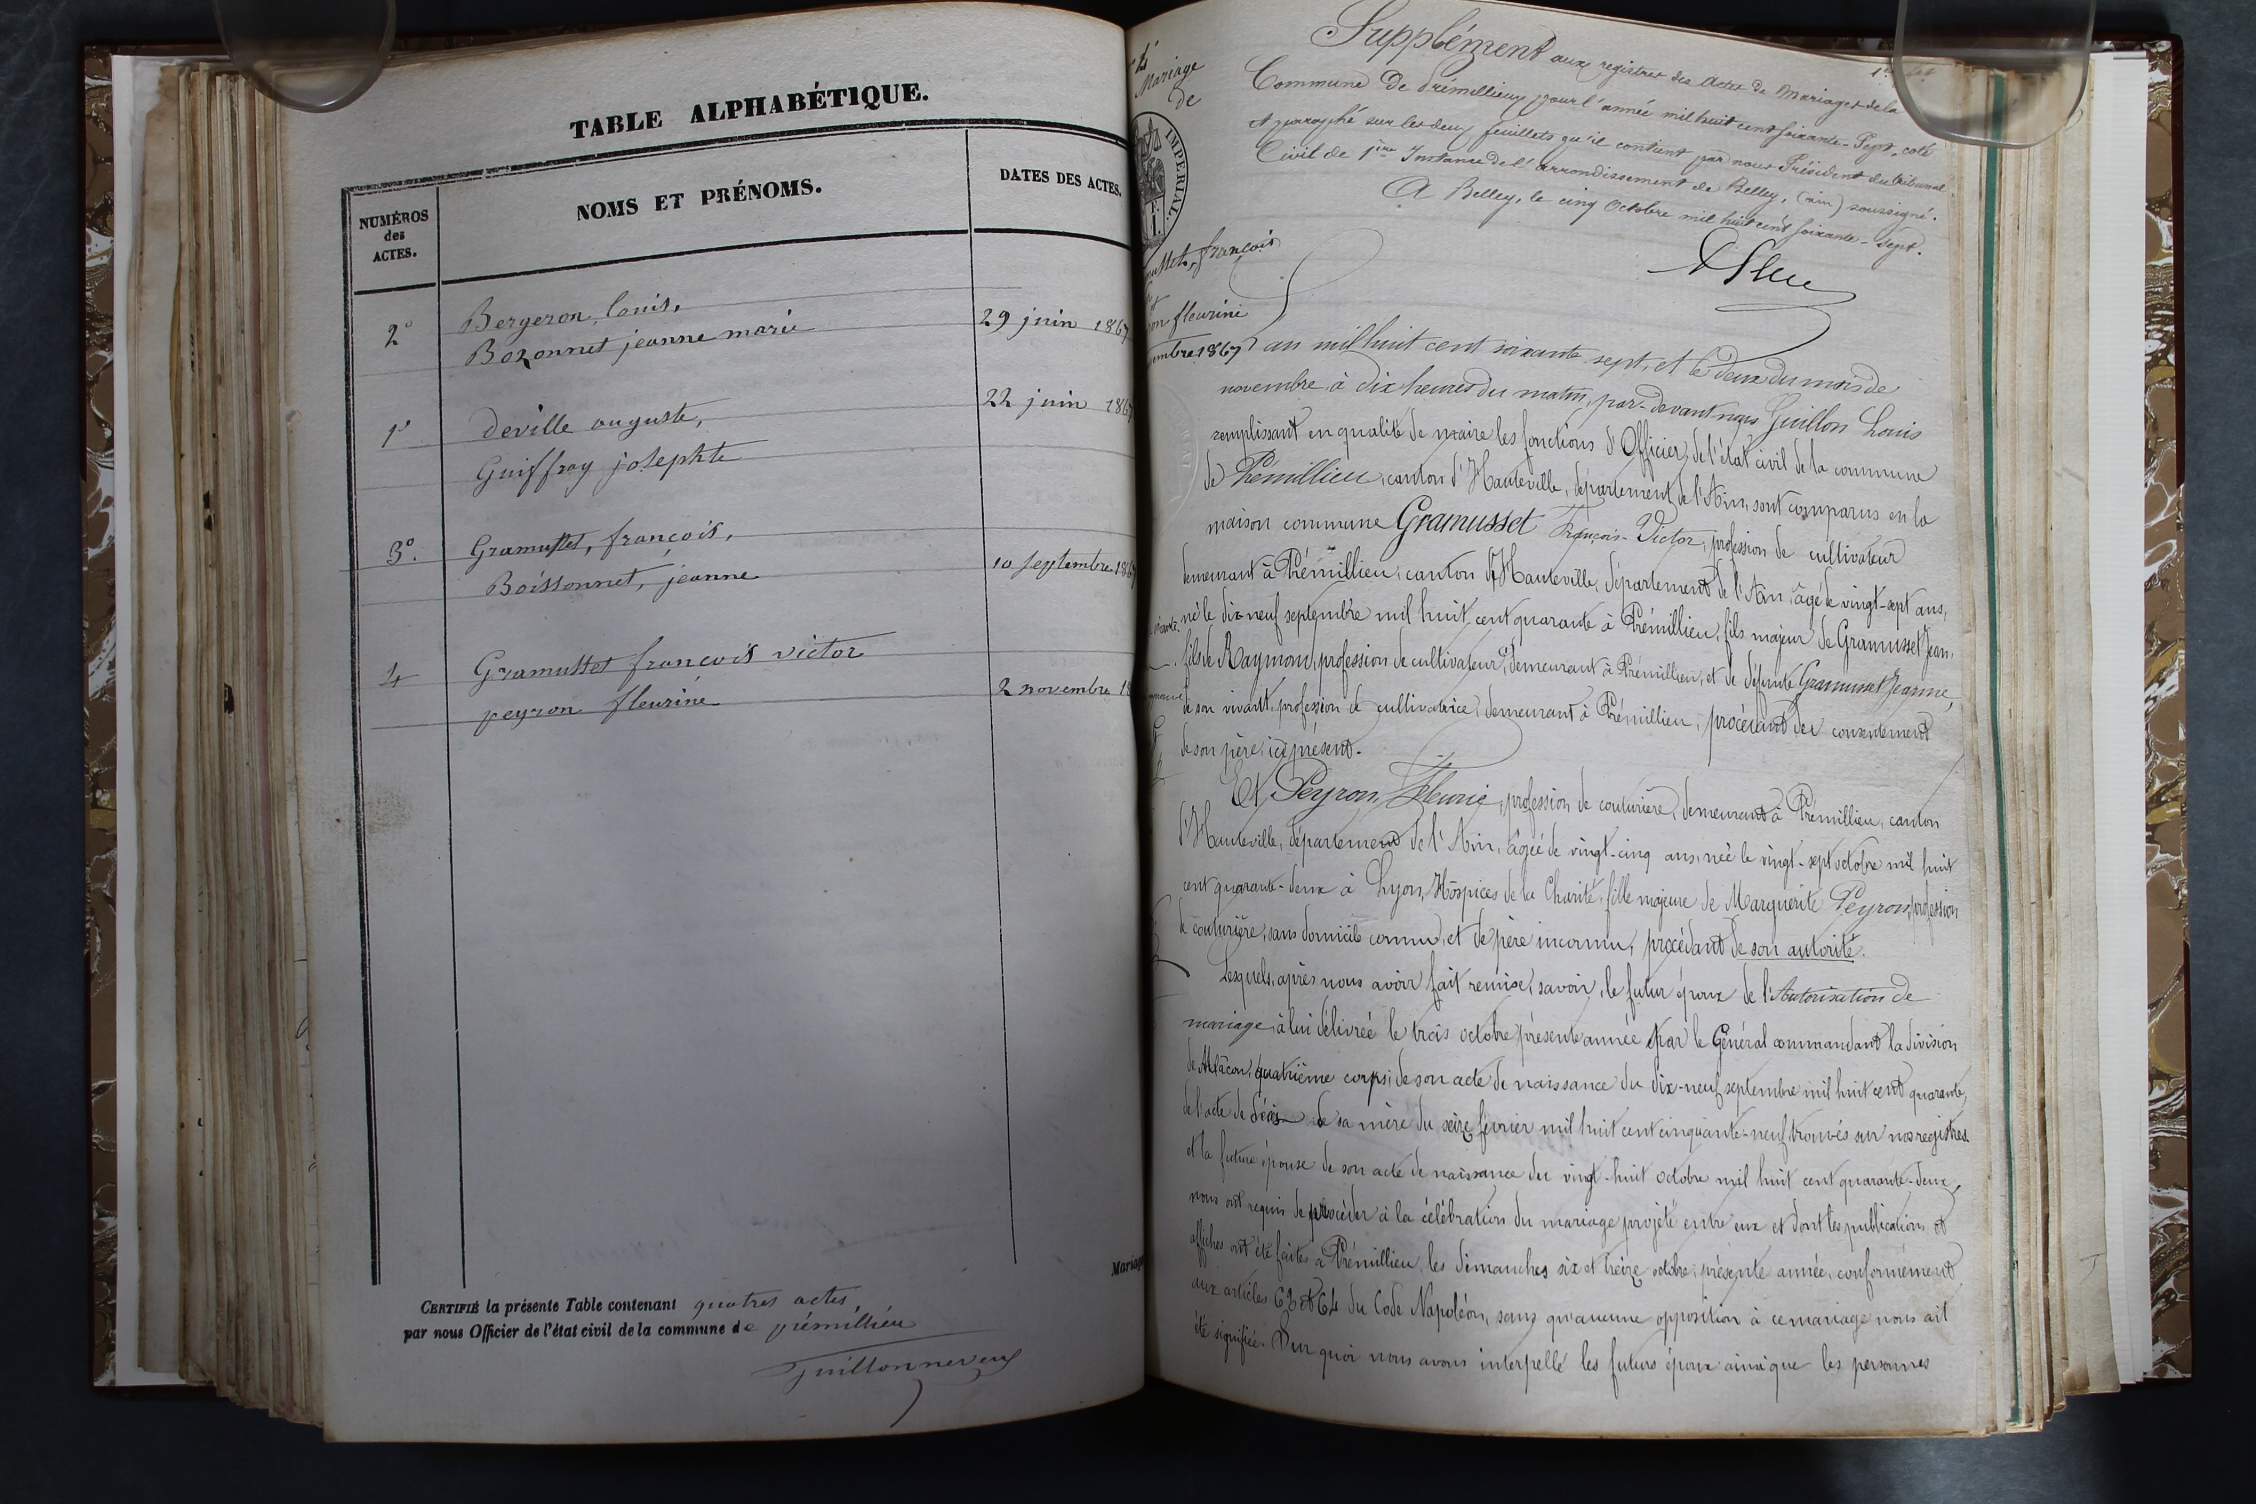 TABLE ALPHABÉTIQUE.
NUMÉROS
des
ACTES.
NOMS ET PRÉNOMS.
DATES DES ACTES.
2°
Bergeron, Louis,
Bozonnet jeanne marie
29 juin 1867
1°
Deville auguste,
Guiffray josephte
22 juin 186
3°.
Gramusset, françois,
Boissonnet, jeanne
10 septembre 186
4
Gramusset françois victor
peyron fleurine
2 novembre 18
CERTIFIÉ la présente Table contenant quatres actes,
par nous Officier de l'état civil de la commune de prémillieu
Guillon neveu
Mariage
Mariage
de
IMPERIAL.
françois
fleurine
embre 1867
Supplément aux registres des Actes de Mariages de la
Commune de Prémillieux pour l'année mil huit cent soixante-Sept, coté
et paraphé sur les deux feuillets qu'il contient par nous Président du tribunal
Civil de 1ère Instance de l'arrondissement de Belley, (ain) soussigné.
A Belley, le cinq Octobre mil huit cent soixante-sept.
L'an mil huit cent soixante sept, et le deux du mois de
novembre, à dix heures du matin, par-devant nous Guillon Louis
remplissant en qualité de maire les fonctions d'Officier de l'état civil de la commune
de Prémillieu, canton d'Hauteville, département de l'Ain, sont comparus en la
maison commune Gramusset François-Victor, profession de cultivateur
demeurant à Prémillieu, canton d'Hauteville, département de l'Ain, âgé de vingt-sept ans,
né le dix neuf septembre mil huit cent quarante à Prémillieu, fils majeur de Gramusset Jean,
fils de Raymond, profession de cultivateur, demeurant à Prémillieu, et de défunte Gramusset Jeanne,
de son vivant profession de cultivatrice, demeurant à Prémillieu, procédant du consentement
de son père, ici présent.
Et Peyron, Fleurie, profession de couturière, demeurant à Prémillieu, canton
d'Hauteville, département de l'Ain, âgée de vingt-cinq ans, née le vingt-sept octobre mil huit
cent quarante-deux à Lyon, Hospices de la Charité, fille majeure de Marguerite Peyron, profession
de couturière, sans domicile connu, et de père inconnu, procédant de son autorité.
Lesquels, après nous avoir fait remise, savoir, le futur époux de l'Autorisation de
mariage à lui délivrée le trois octobre présente année par le Général commandant la division
de Mâcon, quatrième corps; de son acte de naissance du dix-neuf septembre mil huit cent quarante,
de l'acte de décès de sa mère du seize février mil huit cent cinquante-neuf trouvés sur nos registres
et la future épouse de son acte de naissance du vingt-huit octobre mil huit cent quarante-deux,
nous ont requis de procéder à la célébration du mariage projeté entre eux et dont les publications et
affiches ont été faites à Prémillieu, les dimanches six et treize octobre, présente année, conformément
aux articles 63 et 64 du Code Napoléon, sans qu'aucune opposition à ce mariage nous ait
été signifiée. Sur quoi nous avons interpellé les futurs époux ainsi que les personnes